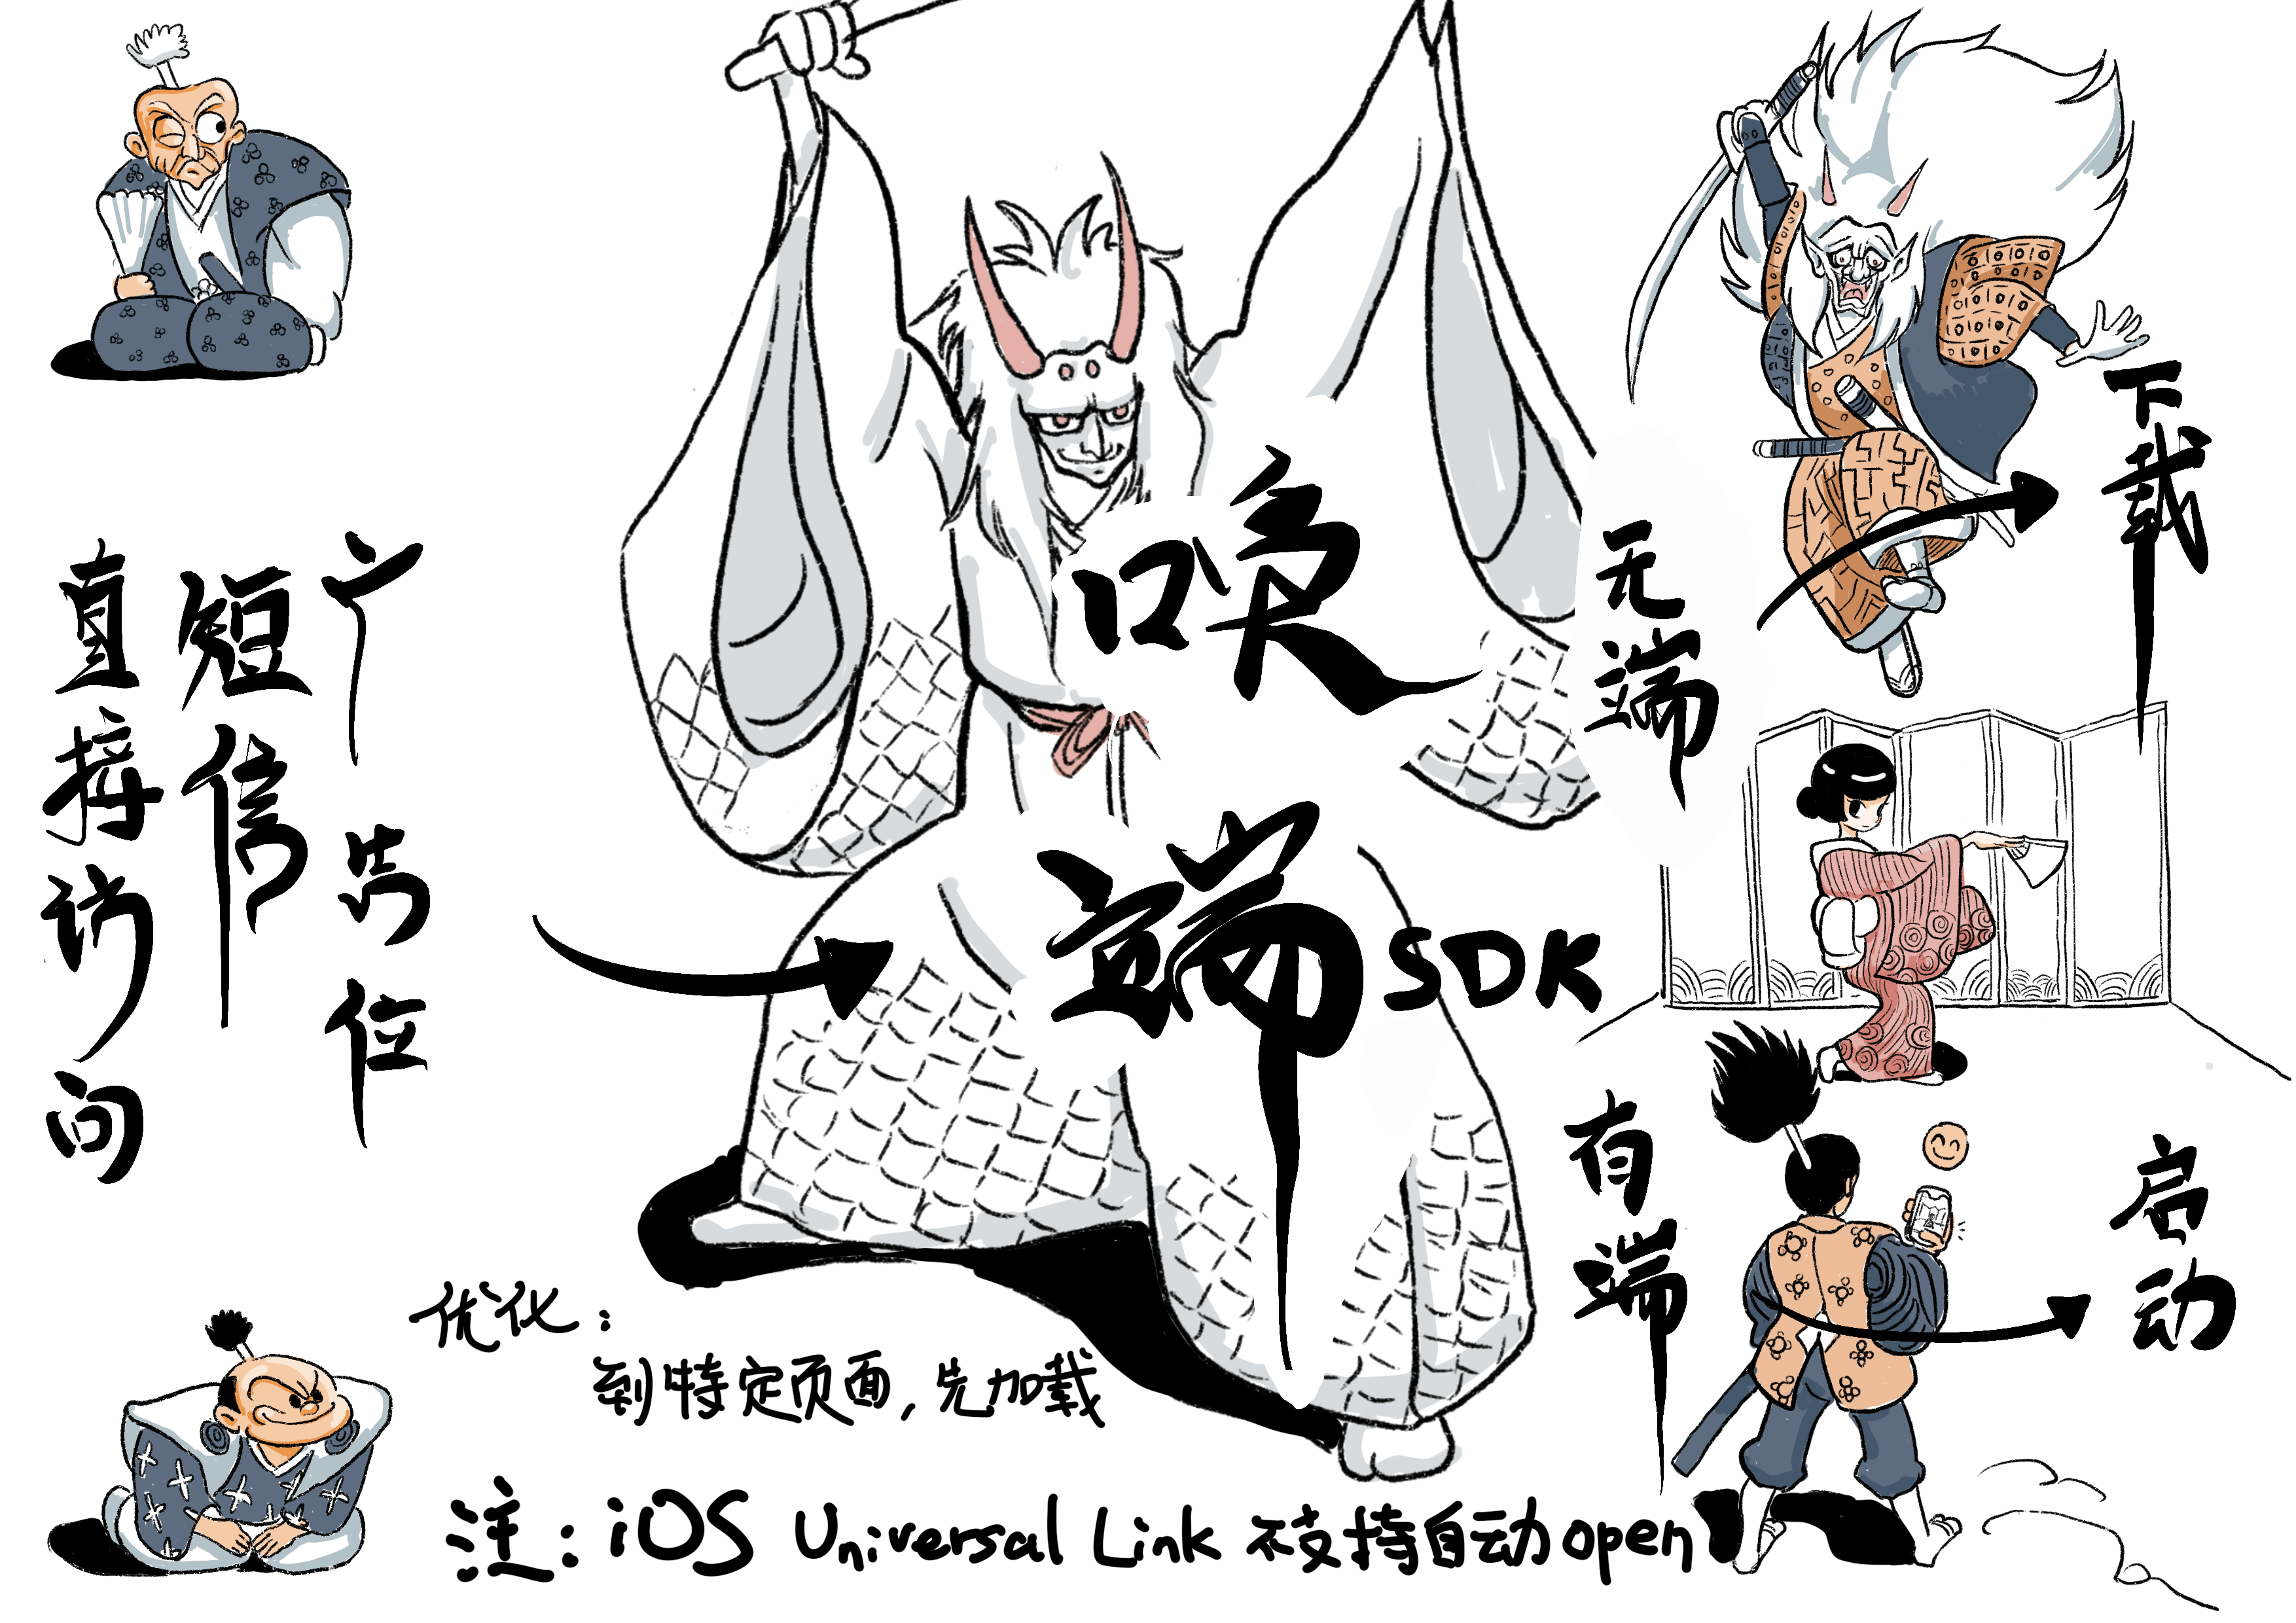 广告位
短信
直接访问
唤端SDK
无端
下载
有端
启动
优化：
到特定页面，先加载
注：iOS Universal Link 不支持自动open